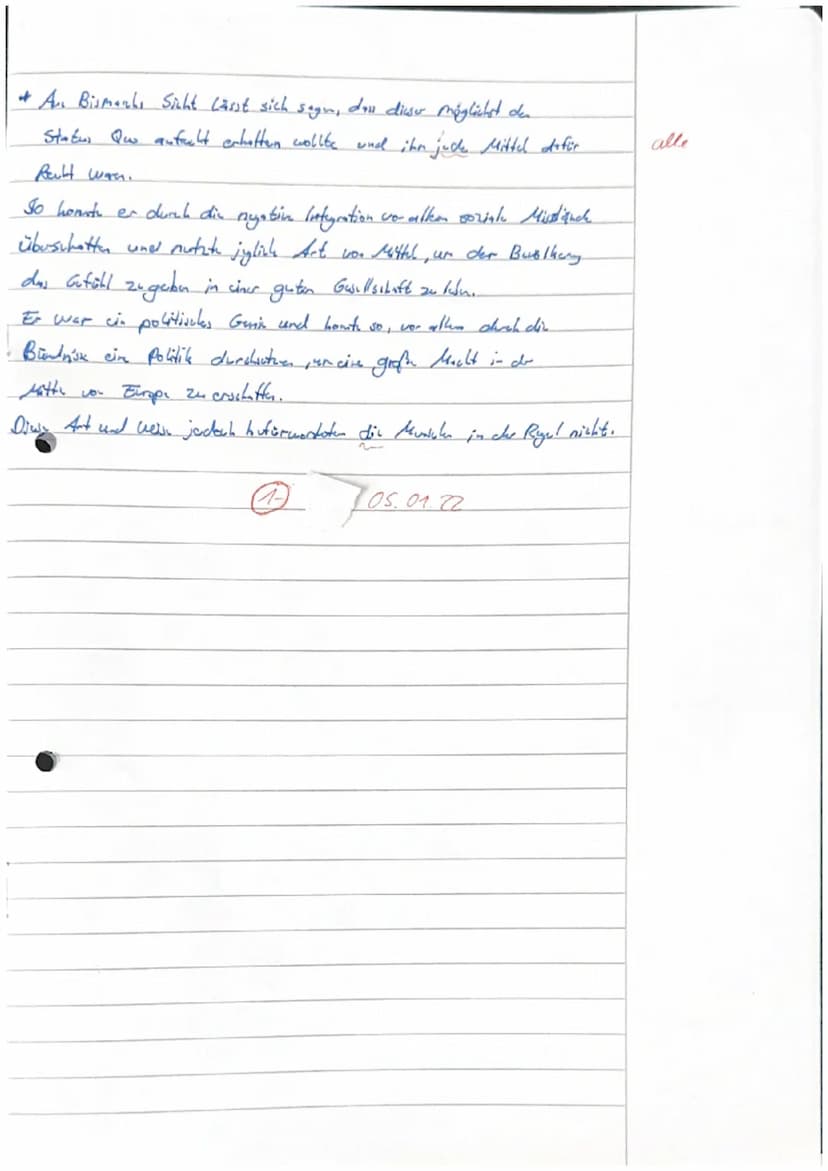 * Aus Bismarcks Sicht lässt sich sagen, dass dieser möglichst den
Status Quo aufrecht erhalten wollte und ihm jede Mittel dafür
Recht waren.
alle
So konnte er durch die negative Integration vor allem soziale Missstände
überschatten und nutzte jegliche Art von Mittel, um der Bevölkerung
das Gefühl zu geben in einer guten Gesellschaft zu leben.
Er war ein politisches Genie und konnte so, vor allem durch die
Bündnisse eine Politik durchsetzen, um eine große Macht in der
Mitte von Europa zu erschaffen.
Diese Art und Weise jedoch befürworteten die Menschen in der Regel nicht.
1-
05.01.22